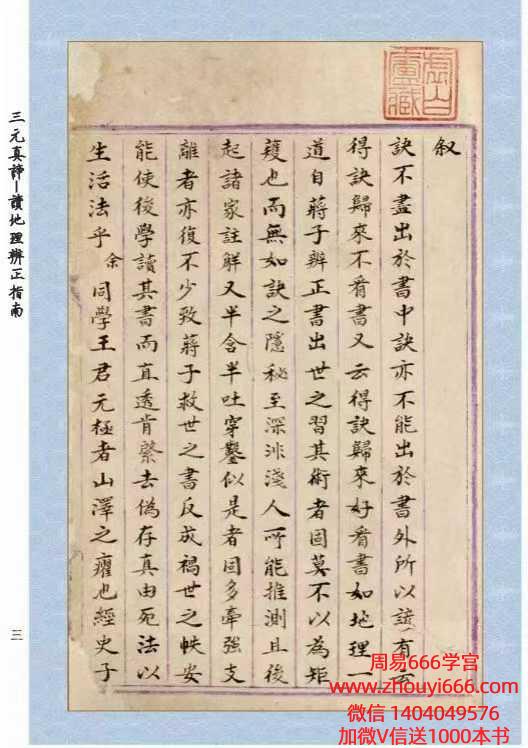 叙
訣不盡出於書中訣亦不能出於書外所以諺有
得訣歸來不看書又云得訣歸來好看書如地理一
道自蔣子辨正書出世之習其術者固莫不以為矩
矱也而無如訣之隱秘至深非淺人所能推測且後
起諸家註解又半含半吐穿鑿似是者固多牽強支
離者亦復不少致蔣子救世之書反成禍世之帙安
能使後學讀其書而直透肯綮去偽存真由死法以
生活法乎余同學王君元極者山澤之癯也經史子
虛白廬藏
三元真諦—讀地理辨正指南
三
周易666学宫
www.zhouyi666.com
微信 1404049576
加微V信送1000本书